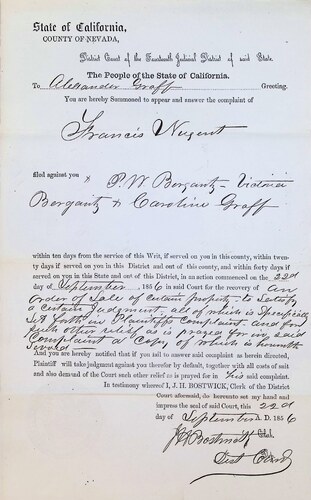 State of California,
COUNTY OF NEVADA,
District Court of the Fourteenth Judicial District of said State.
The People of the State of California.
To Alexander Graff Greeting.
You are hereby Summoned to appear and answer the complaint of
Francis Nugent
filed against you & P. W. Bergantz - Victoria
Bergantz & Caroline Graff
within ten days from the service of this Writ, if served on you in this county, within twen-
ty days if served on you in this District and out of this county, and within forty days if
served on you in this State and out of this District, in an action commenced on the 22d
day of September 1856 in said Court for the recovery of an
order of Sale of certain property to satisfy
a certain Judgment, all of which is Specifically
Set forth in Plaintiff's Complaint. And for
such other relief as is prayed for in said
Complaint a copy of which is herewith
Served
And you are hereby notified that if you fail to answer said complaint as herein directed,
Plaintiff will take judgment against you thereby by default, together with all costs of suit
and also demand of the Court such other relief as is prayed for in his said complaint.
In testimony whereof I, J. H. BOSTWICK, Clerk of the District
Court aforesaid, do hereunto set my hand and
impress the seal of said Court, this 22d
day of September A.D. 1856
J H Bostwick Clerk.
Dist Court